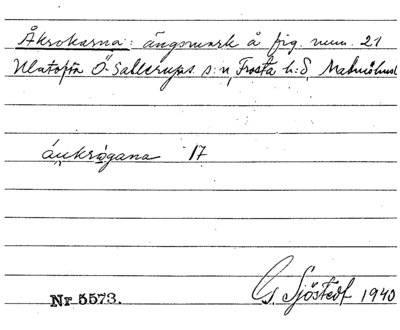 Åkrokarna: ängsmark å fig. num. 21
Ö. Sallerups s:n, Frosta h:d, Malmöhus
áukrogana 17
Nr 5573.
G. Sjöstedt 1940